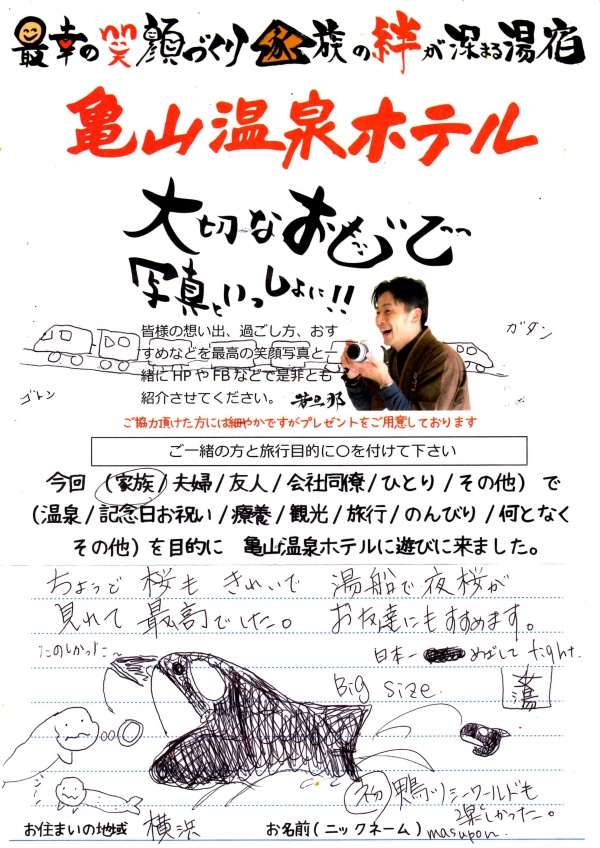 最幸の笑顔づくり 家族の絆が深まる湯宿
亀山温泉ホテル
大切なおもいで
写真といっしょに!!
ガタン
ゴトン
皆様の想い出、過ごし方、おす
すめなどを最高の笑顔写真と一
緒にHPやFBなどで是非とも
紹介させてください。 若旦那
ご協力頂けた方には細やかですがプレゼントをご用意しております
ご一緒の方と旅行目的に〇を付けて下さい
今回(家族/夫婦/友人/会社同僚/ひとり/その他)で
(温泉/記念日お祝い/療養/観光/旅行/のんびり/何となく
その他)を目的に 亀山温泉ホテルに遊びに来ました。
ちょうど 桜も きれいで 湯船で夜桜が
見れて 最高でした。 お友達にもすすめます。
たのしかったこ〜
日本一 めざして fight.
Big size.
湯
初 鴨川シーワールドも
楽しかった。
お住まいの地域 横浜 お名前(ニックネーム) masupon.